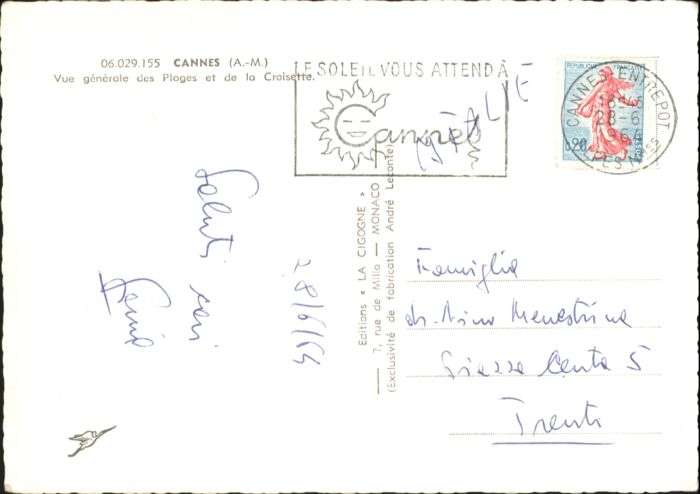 06.029.155 CANNES (A.-M.)
Vue générale des Plages et de la Croisette.
LE SOLEIL VOUS ATTEND À
Cannes
REPUBLIQUE FRANÇAISE
0,20
POSTES
CANNES-ENTREPOT
28-6
ALPES MMES
ITALIE
Saluti cari
28/6/64
Editions « LA CIGOGNE »
— 7, rue de Millo — MONACO —
(Exclusivité de fabrication André Leconte)
Famiglia
dr. Nino Menestrina
Piazza Centa 5
Trento